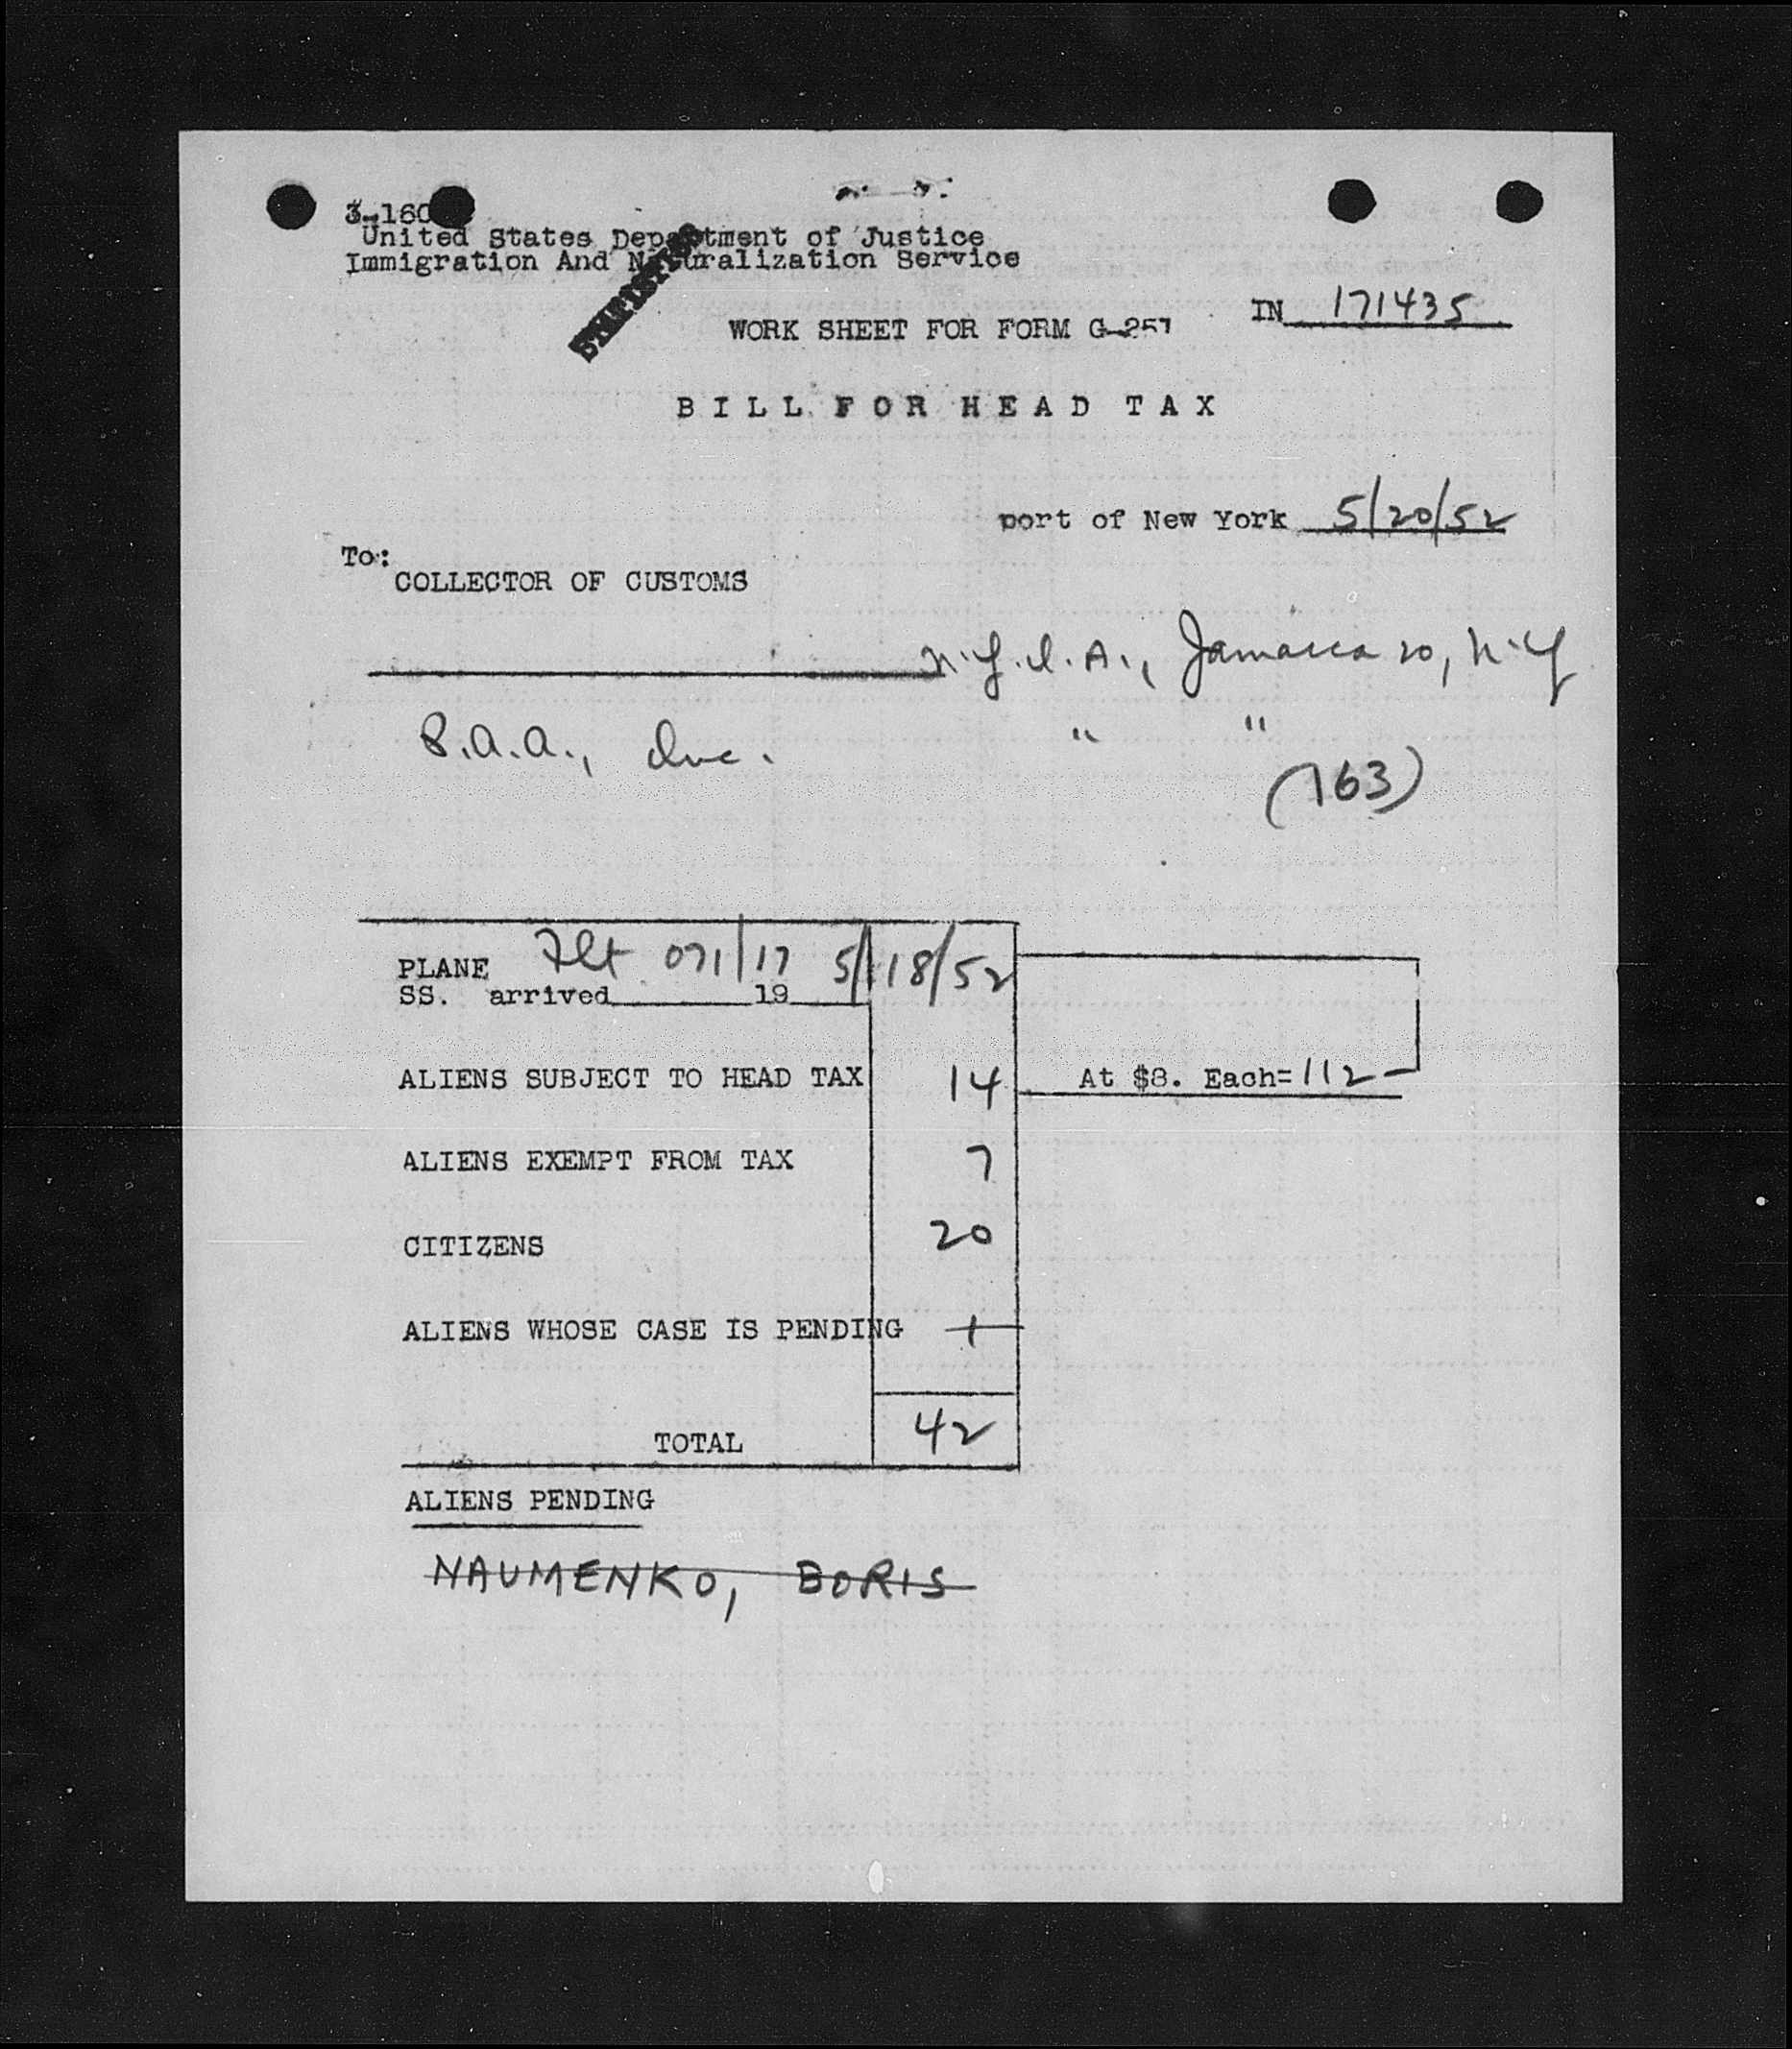 3-160
United States Department of Justice
Immigration And Naturalization Service
STATISTICS
IN 171435
WORK SHEET FOR FORM G-257
BILL FOR HEAD TAX
port of New York 5/20/52
To:
COLLECTOR OF CUSTOMS
N.Y.I.A., Jamaica 20, N.Y
P.A.A., Inc. " "
(163)
PLANE Flt 071/17 5/18/52
SS. arrived 19
ALIENS SUBJECT TO HEAD TAX 14 At $8. Each= 112
ALIENS EXEMPT FROM TAX 7
CITIZENS 20
ALIENS WHOSE CASE IS PENDING 1
TOTAL 42
ALIENS PENDING
NAUMENKO, BORIS